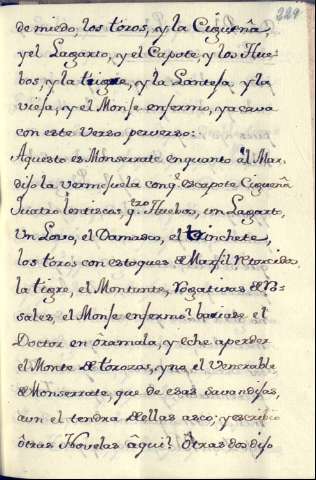 229
de miedo, los toros, y la Cigueña
y el Lagarto, y el Capote, y los Hue-
bos, y la tigre, y la Lanteja y la
vieja, y el Monje enfermo, y acava
con este Verso perverso:
Aquesto es Monserrate enquanto al Mar.
dijo la vermejuela conq.e escapote Cigueña
quatro lentiscos, q.tro Huebos, un Lagarto,
Un Lovo, el Damasco, el trinchete,
los toros con estoques de Marfil retorcido
la tigre, el Montante, Rogativas de
sales, el Monje enfermo! bajase el
Doctor en oramala, y eche a perder
el Monte de torozos, y no el Venerable
de Monserrate, que de esas savandijas,
aun el tendra dellas asco: y escrivio
ôtras Novelas âqui? Ôtras dos dijo